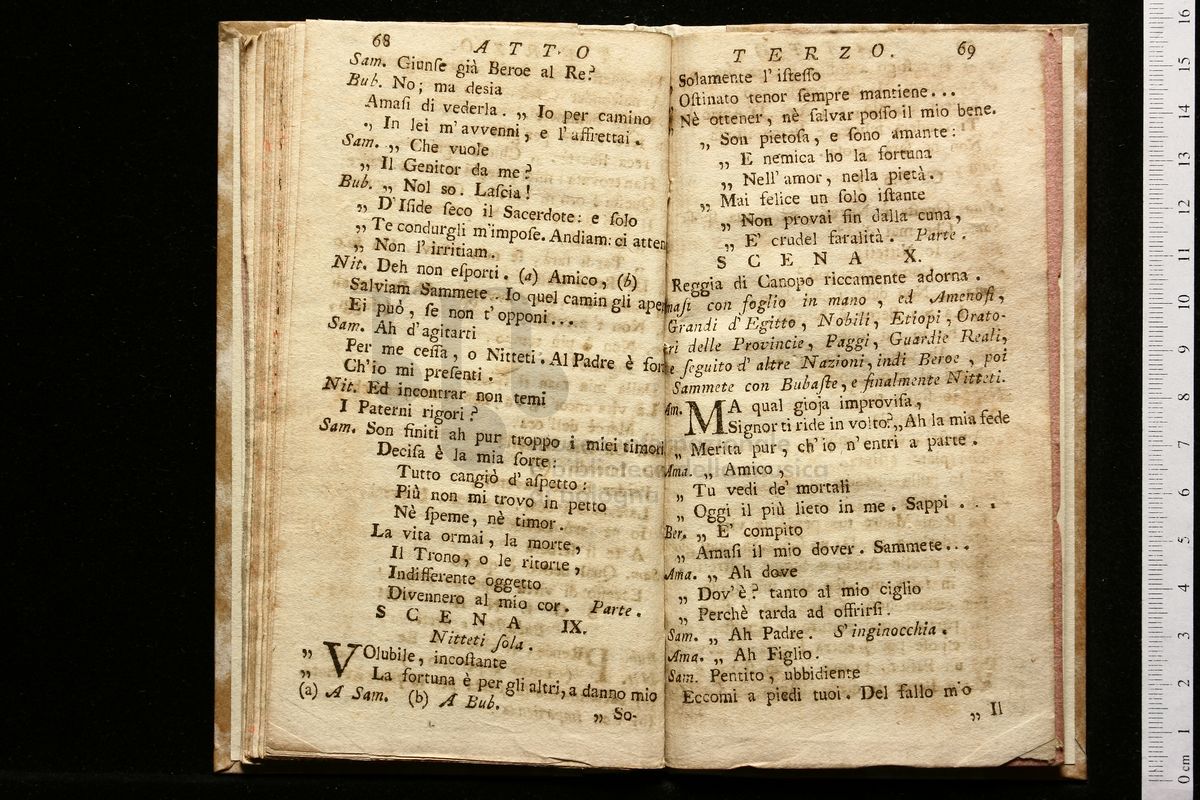 68
A T T O
Sam. Giunſe già Beroe al Re?
Bub. No; ma desia
Amaſi di vederla. „ Io per camino
„ In lei m'avvenni, e l'affrettai.
Sam. „ Che vuole
„ Il Genitor da me?
Bub. „ Nol so. Laſcia!
„ D'Iſide ſeco il Sacerdote: e ſolo
„ Te condurgli m'impoſe. Andiam: ci atten
„ Non l'irritiam.
Nit. Deh non eſporti. (a) Amico, (b)
Salviam Sammete. Io quel camin gli ape
Ei può, ſe non t'opponi...
Sam. Ah d'agitarti
Per me ceſſa, o Nitteti. Al Padre è for
Ch'io mi preſenti.
Nit. Ed incontrar non temi
I Paterni rigori?
Sam. Son finiti ah pur troppo i miei timori
Deciſa è la mia ſorte:
Tutto cangiò d'aſpetto:
Più non mi trovo in petto
Nè ſpeme, nè timor.
La vita ormai, la morte,
Il Trono, o le ritorte,
Indifferente oggetto
Divennero al mio cor. Parte.
S C E N A IX.
Nitteti ſola.
„ VOlubile, incoſtante
„ La fortuna è per gli altri, a danno mio
(a) A Sam. (b) A Bub.
„ So-
T E R Z O. 69
Solamente l'iſteſſo
Oſtinato tenor ſempre mantiene...
Nè ottener, nè ſalvar poſſo il mio bene.
„ Son pietoſa, e ſono amante:
„ E nemica ho la fortuna
„ Nell'amor, nella pietà.
„ Mai felice un ſolo iſtante
„ Non provai fin dalla cuna,
„ E' crudel faralità. Parte.
S C E N A X.
Reggia di Canopo riccamente adorna.
maſi con foglio in mano, ed Amenofi,
Grandi d'Egitto, Nobili, Etiopi, Orato-
ri delle Provincie, Paggi, Guardie Reali,
e ſeguito d'altre Nazioni, indi Beroe, poi
Sammete con Bubaſte, e finalmente Nitteti.
Am. MA qual gioja improviſa,
Signor ti ride in volto? „ Ah la mia fede
„ Merita pur, ch'io n'entri a parte.
Ama. „ Amico,
„ Tu vedi de' mortali
„ Oggi il più lieto in me. Sappi . . .
Ber. „ E' compito
„ Amaſi il mio dover. Sammete...
Ama. „ Ah dove
„ Dov'è? tanto al mio ciglio
„ Perchè tarda ad offrirſi.
Sam. „ Ah Padre. S'inginocchia.
Ama. „ Ah Figlio.
Sam. Pentito, ubbidiente
Eccomi a piedi tuoi. Del fallo mio
„ Il